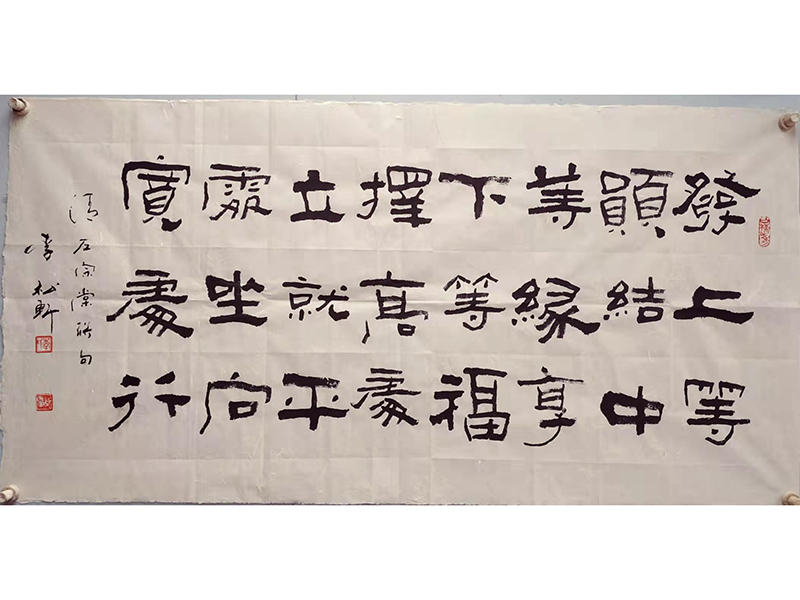 發上等
願結中
等緣享
下等福
擇高處
立就平
處坐向
寬處行
清左宗棠联句
李松軒